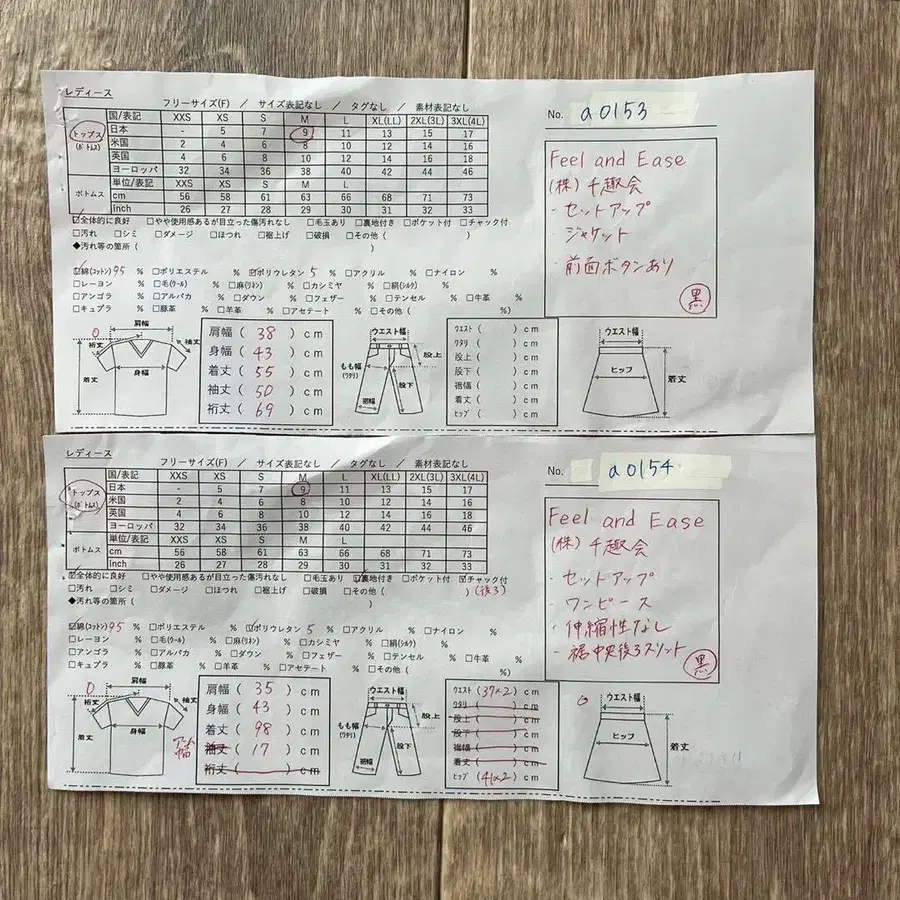 レディース
フリーサイズ(F) / サイズ表記なし / タグなし / 素材表記なし
No. a0153
トップス (ボトムス)
国/表記 XXS XS S M L XL(LL) 2XL(3L) 3XL(4L)
日本 - 5 7 9 11 13 15 17
米国 2 4 6 8 10 12 14 16
英国 4 6 8 10 12 14 16 18
ヨーロッパ 32 34 36 38 40 42 44 46
ボトムス
単位/表記 XXS XS S M L
cm 56 58 61 63 66 68 71 73
inch 26 27 28 29 30 31 32 33
☑全体的に良好 □やや使用感あるが目立った傷汚れなし □毛玉あり □裏地付き □ポケット付 □チャック付
□汚れ □シミ □ダメージ □ほつれ □裾上げ □破損 □その他 ( )
◆汚れ等の箇所 ( )
☑綿(コットン) 95 % □ポリエステル % ☑ポリウレタン 5 % □アクリル % □ナイロン %
□レーヨン % □毛(ウール) % □麻(リネン) % □カシミヤ % □絹(シルク) %
□アンゴラ % □アルパカ % □ダウン % □フェザー % □テンセル % □牛革 %
□キュプラ % □豚革 % □羊革 % □アセテート % □その他 ( %)
Feel and Ease
(株) 千趣会
・セットアップ
・ジャケット
・前面ボタンあり
黒
肩幅
裄丈
袖丈
着丈
身幅
肩幅 ( 38 ) cm
身幅 ( 43 ) cm
着丈 ( 55 ) cm
袖丈 ( 50 ) cm
裄丈 ( 69 ) cm
ウエスト幅
股上
もも幅
(ワタリ)
股下
裾幅
ウエスト ( ) cm
ワタリ ( ) cm
股上 ( ) cm
股下 ( ) cm
裾幅 ( ) cm
着丈 ( ) cm
ヒップ ( ) cm
ウエスト幅
ヒップ
着丈
レディース
フリーサイズ(F) / サイズ表記なし / タグなし / 素材表記なし
No. a0154
トップス (ボトムス)
国/表記 XXS XS S M L XL(LL) 2XL(3L) 3XL(4L)
日本 - 5 7 9 11 13 15 17
米国 2 4 6 8 10 12 14 16
英国 4 6 8 10 12 14 16 18
ヨーロッパ 32 34 36 38 40 42 44 46
ボトムス
単位/表記 XXS XS S M L
cm 56 58 61 63 66 68 71 73
inch 26 27 28 29 30 31 32 33
☑全体的に良好 □やや使用感あるが目立った傷汚れなし □毛玉あり ☑裏地付き □ポケット付 ☑チャック付
□汚れ □シミ □ダメージ □ほつれ □裾上げ □破損 □その他 ( ) (後ろ)
◆汚れ等の箇所 ( )
☑綿(コットン) 95 % □ポリエステル % ☑ポリウレタン 5 % □アクリル % □ナイロン %
□レーヨン % □毛(ウール) % □麻(リネン) % □カシミヤ % □絹(シルク) %
□アンゴラ % □アルパカ % □ダウン % □フェザー % □テンセル % □牛革 %
□キュプラ % □豚革 % □羊革 % □アセテート % □その他 ( %)
Feel and Ease
(株) 千趣会
・セットアップ
・ワンピース
・伸縮性なし
・裾中央後ろスリット
黒
肩幅
裄丈
袖丈
着丈
身幅
肩幅 ( 35 ) cm
身幅 ( 43 ) cm
着丈 ( 98 ) cm
袖丈 ( 17 ) cm
裄丈 ( ) cm
ウエスト幅
股上
もも幅
(ワタリ)
股下
裾幅
ウエスト (37×2) cm
ワタリ ( ) cm
股上 ( ) cm
股下 ( ) cm
裾幅 ( ) cm
着丈 ( ) cm
ヒップ (41×2) cm
ウエスト幅
ヒップ
着丈